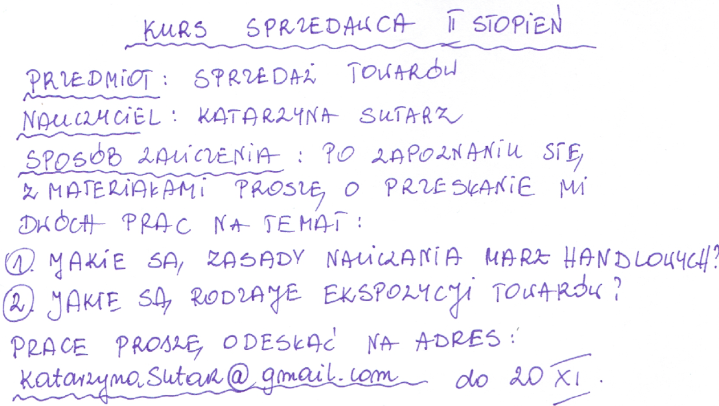 KURS SPRZEDAWCA II STOPIEŃ
PRZEDMIOT: SPRZEDAŻ TOWARÓW
NAUCZYCIEL: KATARZYNA SUTARZ
SPOSÓB ZALICZENIA: PO ZAPOZNANIU SIĘ
Z MATERIAŁAMI PROSZĘ O PRZESŁANIE MI
DWÓCH PRAC NA TEMAT:
1. JAKIE SĄ ZASADY NALICZANIA MARŻ HANDLOWYCH?
2. JAKIE SĄ RODZAJE EKSPOZYCJI TOWARÓW?
PRACE PROSZĘ ODESŁAĆ NA ADRES:
KatarzynaSutar@gmail.com do 20 XI.